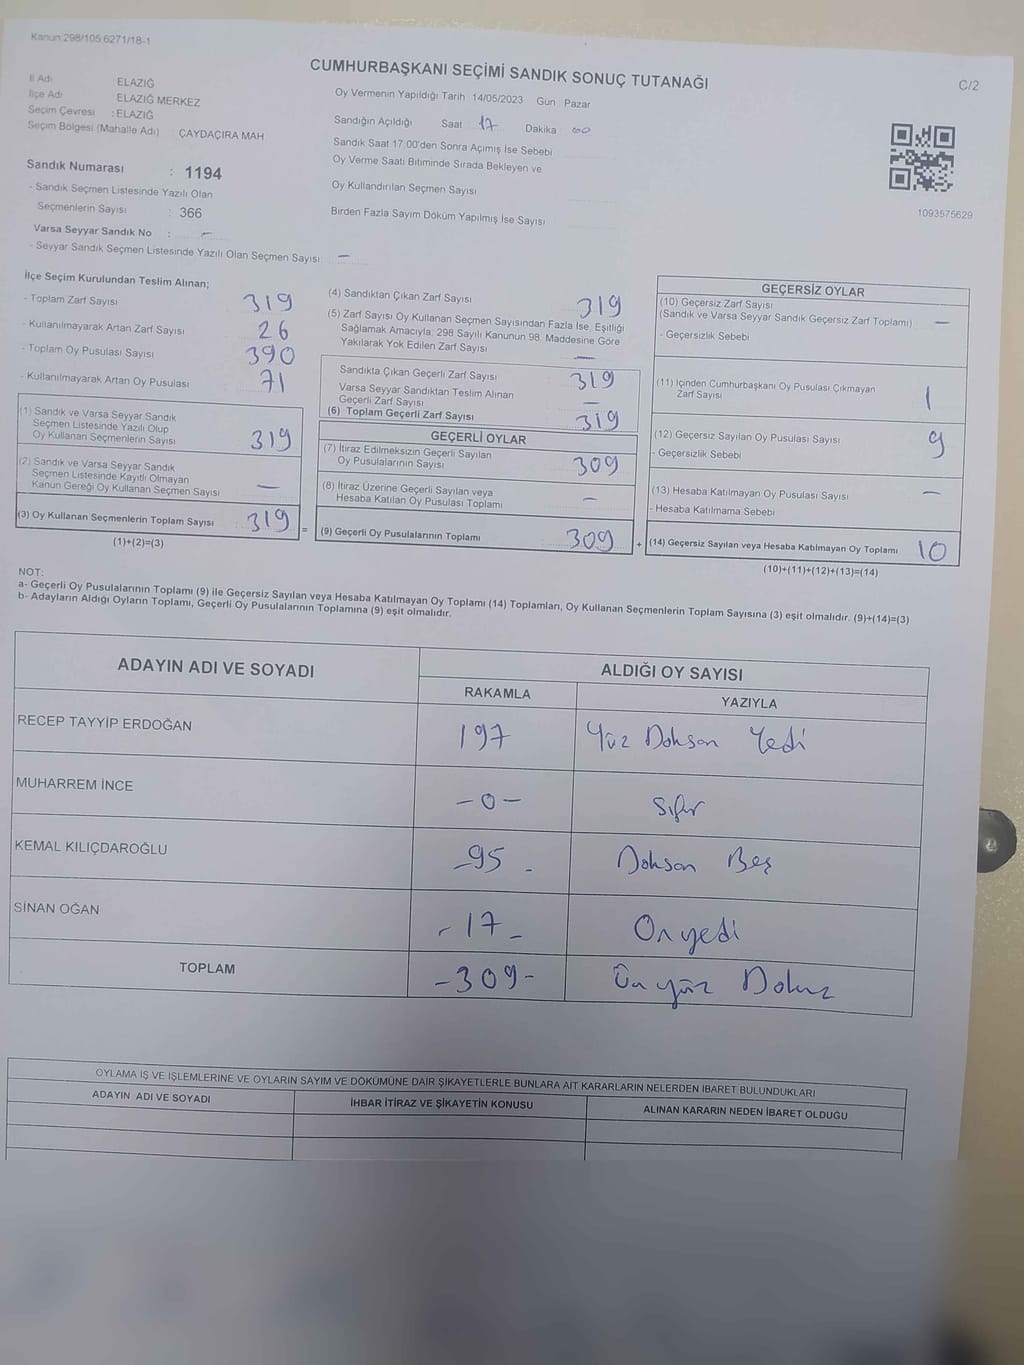 Kanun:298/105.6271/18-1
CUMHURBAŞKANI SEÇİMİ SANDIK SONUÇ TUTANAĞI
C/2
İl Adı ELAZIĞ
İlçe Adı ELAZIĞ MERKEZ
Seçim Çevresi : ELAZIĞ
Seçim Bölgesi (Mahalle Adı) ÇAYDAÇIRA MAH
Sandık Numarası : 1194
- Sandık Seçmen Listesinde Yazılı Olan
Seçmenlerin Sayısı : 366
Varsa Seyyar Sandık No : -
- Seyyar Sandık Seçmen Listesinde Yazılı Olan Seçmen Sayısı: -
Oy Vermenin Yapıldığı Tarih 14/05/2023 Gün : Pazar
Sandığın Açıldığı Saat 17 Dakika 00
Sandık Saat 17.00'den Sonra Açımış İse Sebebi
Oy Verme Saati Bitiminde Sırada Bekleyen ve
Oy Kullandırılan Seçmen Sayısı
Birden Fazla Sayım Döküm Yapılmış İse Sayısı
1093575629
İlçe Seçim Kurulundan Teslim Alınan;
- Toplam Zarf Sayısı 319
- Kullanılmayarak Artan Zarf Sayısı 26
- Toplam Oy Pusulası Sayısı 390
- Kullanılmayarak Artan Oy Pusulası 71
(1) Sandık ve Varsa Seyyar Sandık
Seçmen Listesinde Yazılı Olup
Oy Kullanan Seçmenlerin Sayısı 319
(2) Sandık ve Varsa Seyyar Sandık
Seçmen Listesinde Kayıtlı Olmayan
Kanun Gereği Oy Kullanan Seçmen Sayısı -
(3) Oy Kullanan Seçmenlerin Toplam Sayısı 319 =
(1)+(2)=(3)
(4) Sandıktan Çıkan Zarf Sayısı 319
(5) Zarf Sayısı Oy Kullanan Seçmen Sayısından Fazla İse, Eşitliği
Sağlamak Amacıyla; 298 Sayılı Kanunun 98. Maddesine Göre
Yakılarak Yok Edilen Zarf Sayısı -
Sandıkta Çıkan Geçerli Zarf Sayısı 319
Varsa Seyyar Sandıktan Teslim Alınan
Geçerli Zarf Sayısı -
(6) Toplam Geçerli Zarf Sayısı 319
GEÇERLİ OYLAR
(7) İtiraz Edilmeksizin Geçerli Sayılan
Oy Pusulalarının Sayısı 309
(8) İtiraz Üzerine Geçerli Sayılan veya
Hesaba Katılan Oy Pusulası Toplamı -
(9) Geçerli Oy Pusulalarının Toplamı 309 +
GEÇERSİZ OYLAR
(10) Geçersiz Zarf Sayısı
(Sandık ve Varsa Seyyar Sandık Geçersiz Zarf Toplamı) -
- Geçersizlik Sebebi
(11) İçinden Cumhurbaşkanı Oy Pusulası Çıkmayan
Zarf Sayısı 1
(12) Geçersiz Sayılan Oy Pusulası Sayısı 9
- Geçersizlik Sebebi
(13) Hesaba Katılmayan Oy Pusulası Sayısı -
- Hesaba Katılmama Sebebi
(14) Geçersiz Sayılan veya Hesaba Katılmayan Oy Toplamı 10
(10)+(11)+(12)+(13)=(14)
NOT:
a- Geçerli Oy Pusulalarının Toplamı (9) ile Geçersiz Sayılan veya Hesaba Katılmayan Oy Toplamı (14) Toplamları, Oy Kullanan Seçmenlerin Toplam Sayısına (3) eşit olmalıdır. (9)+(14)=(3)
b- Adayların Aldığı Oyların Toplamı, Geçerli Oy Pusulalarının Toplamına (9) eşit olmalıdır.
ADAYIN ADI VE SOYADI ALDIĞI OY SAYISI
RAKAMLA YAZIYLA
RECEP TAYYİP ERDOĞAN 197 Yüz Doksan Yedi
MUHARREM İNCE -0- Sıfır
KEMAL KILIÇDAROĞLU -95- Doksan Beş
SİNAN OĞAN -17- On yedi
TOPLAM -309- Üç yüz Dokuz
OYLAMA İŞ VE İŞLEMLERİNE VE OYLARIN SAYIM VE DÖKÜMÜNE DAİR ŞİKAYETLERLE BUNLARA AİT KARARLARIN NELERDEN İBARET BULUNDUKLARI
ADAYIN ADI VE SOYADI İHBAR İTİRAZ VE ŞİKAYETİN KONUSU ALINAN KARARIN NEDEN İBARET OLDUĞU